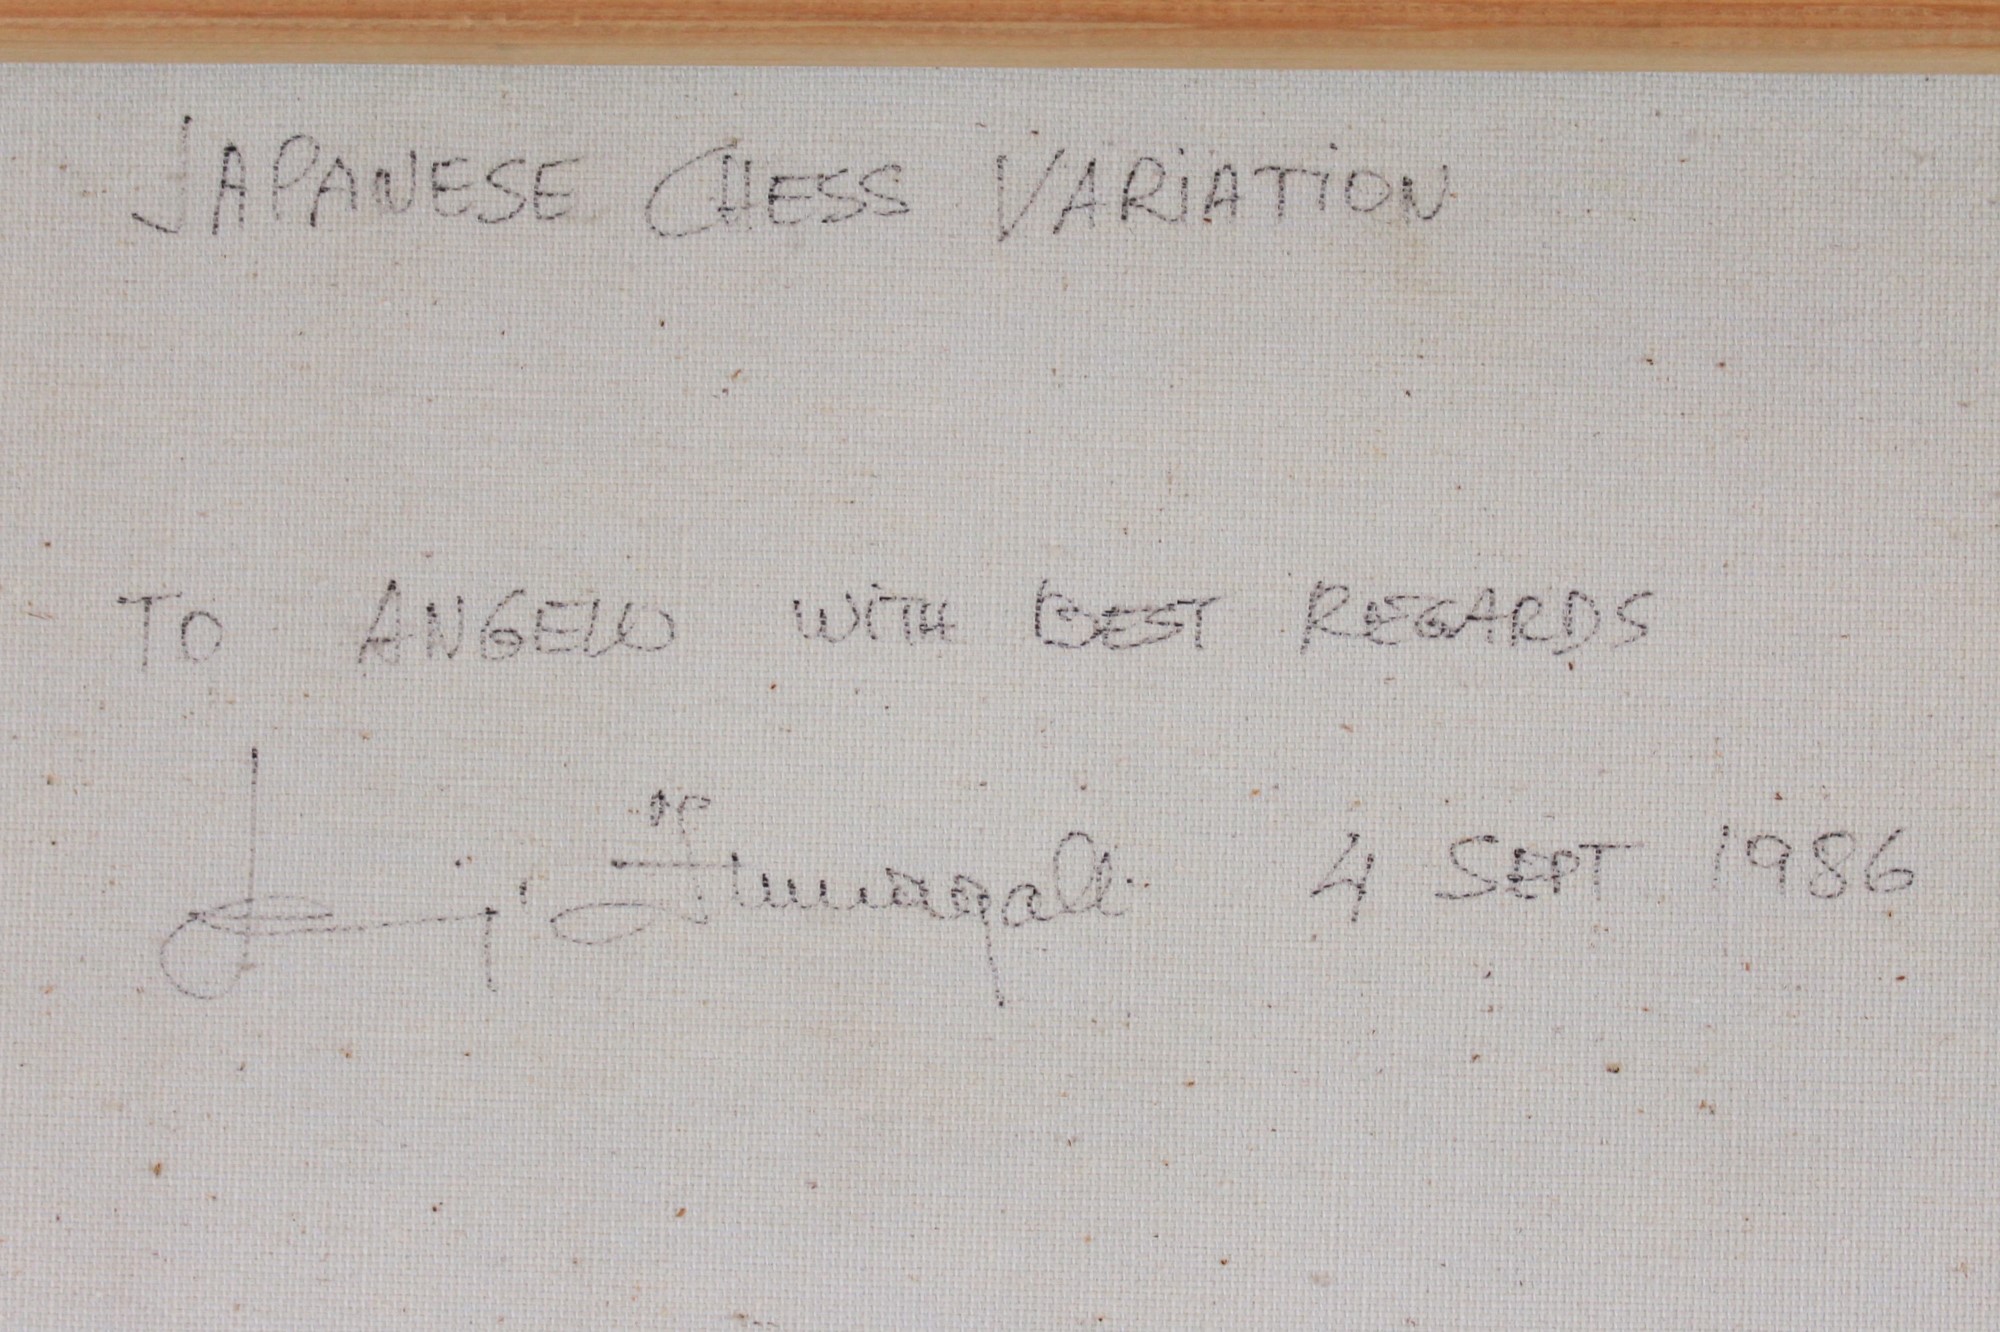 JAPANESE CHESS VARIATION
TO ANGELO WITH BEST REGARDS
Luigi Fumagalli 4 SEPT 1986